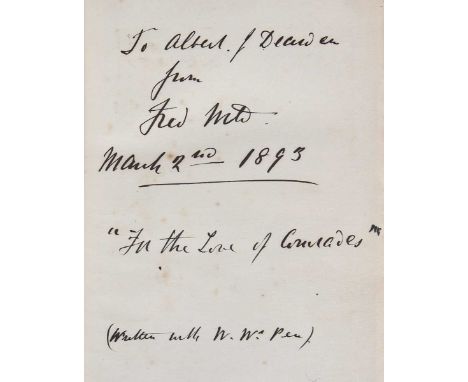 To Albert. J Dearden
from
Fred Wild.
March 2nd 1893
"For the Love of Comrades"
(Written with W. Ws Pen).